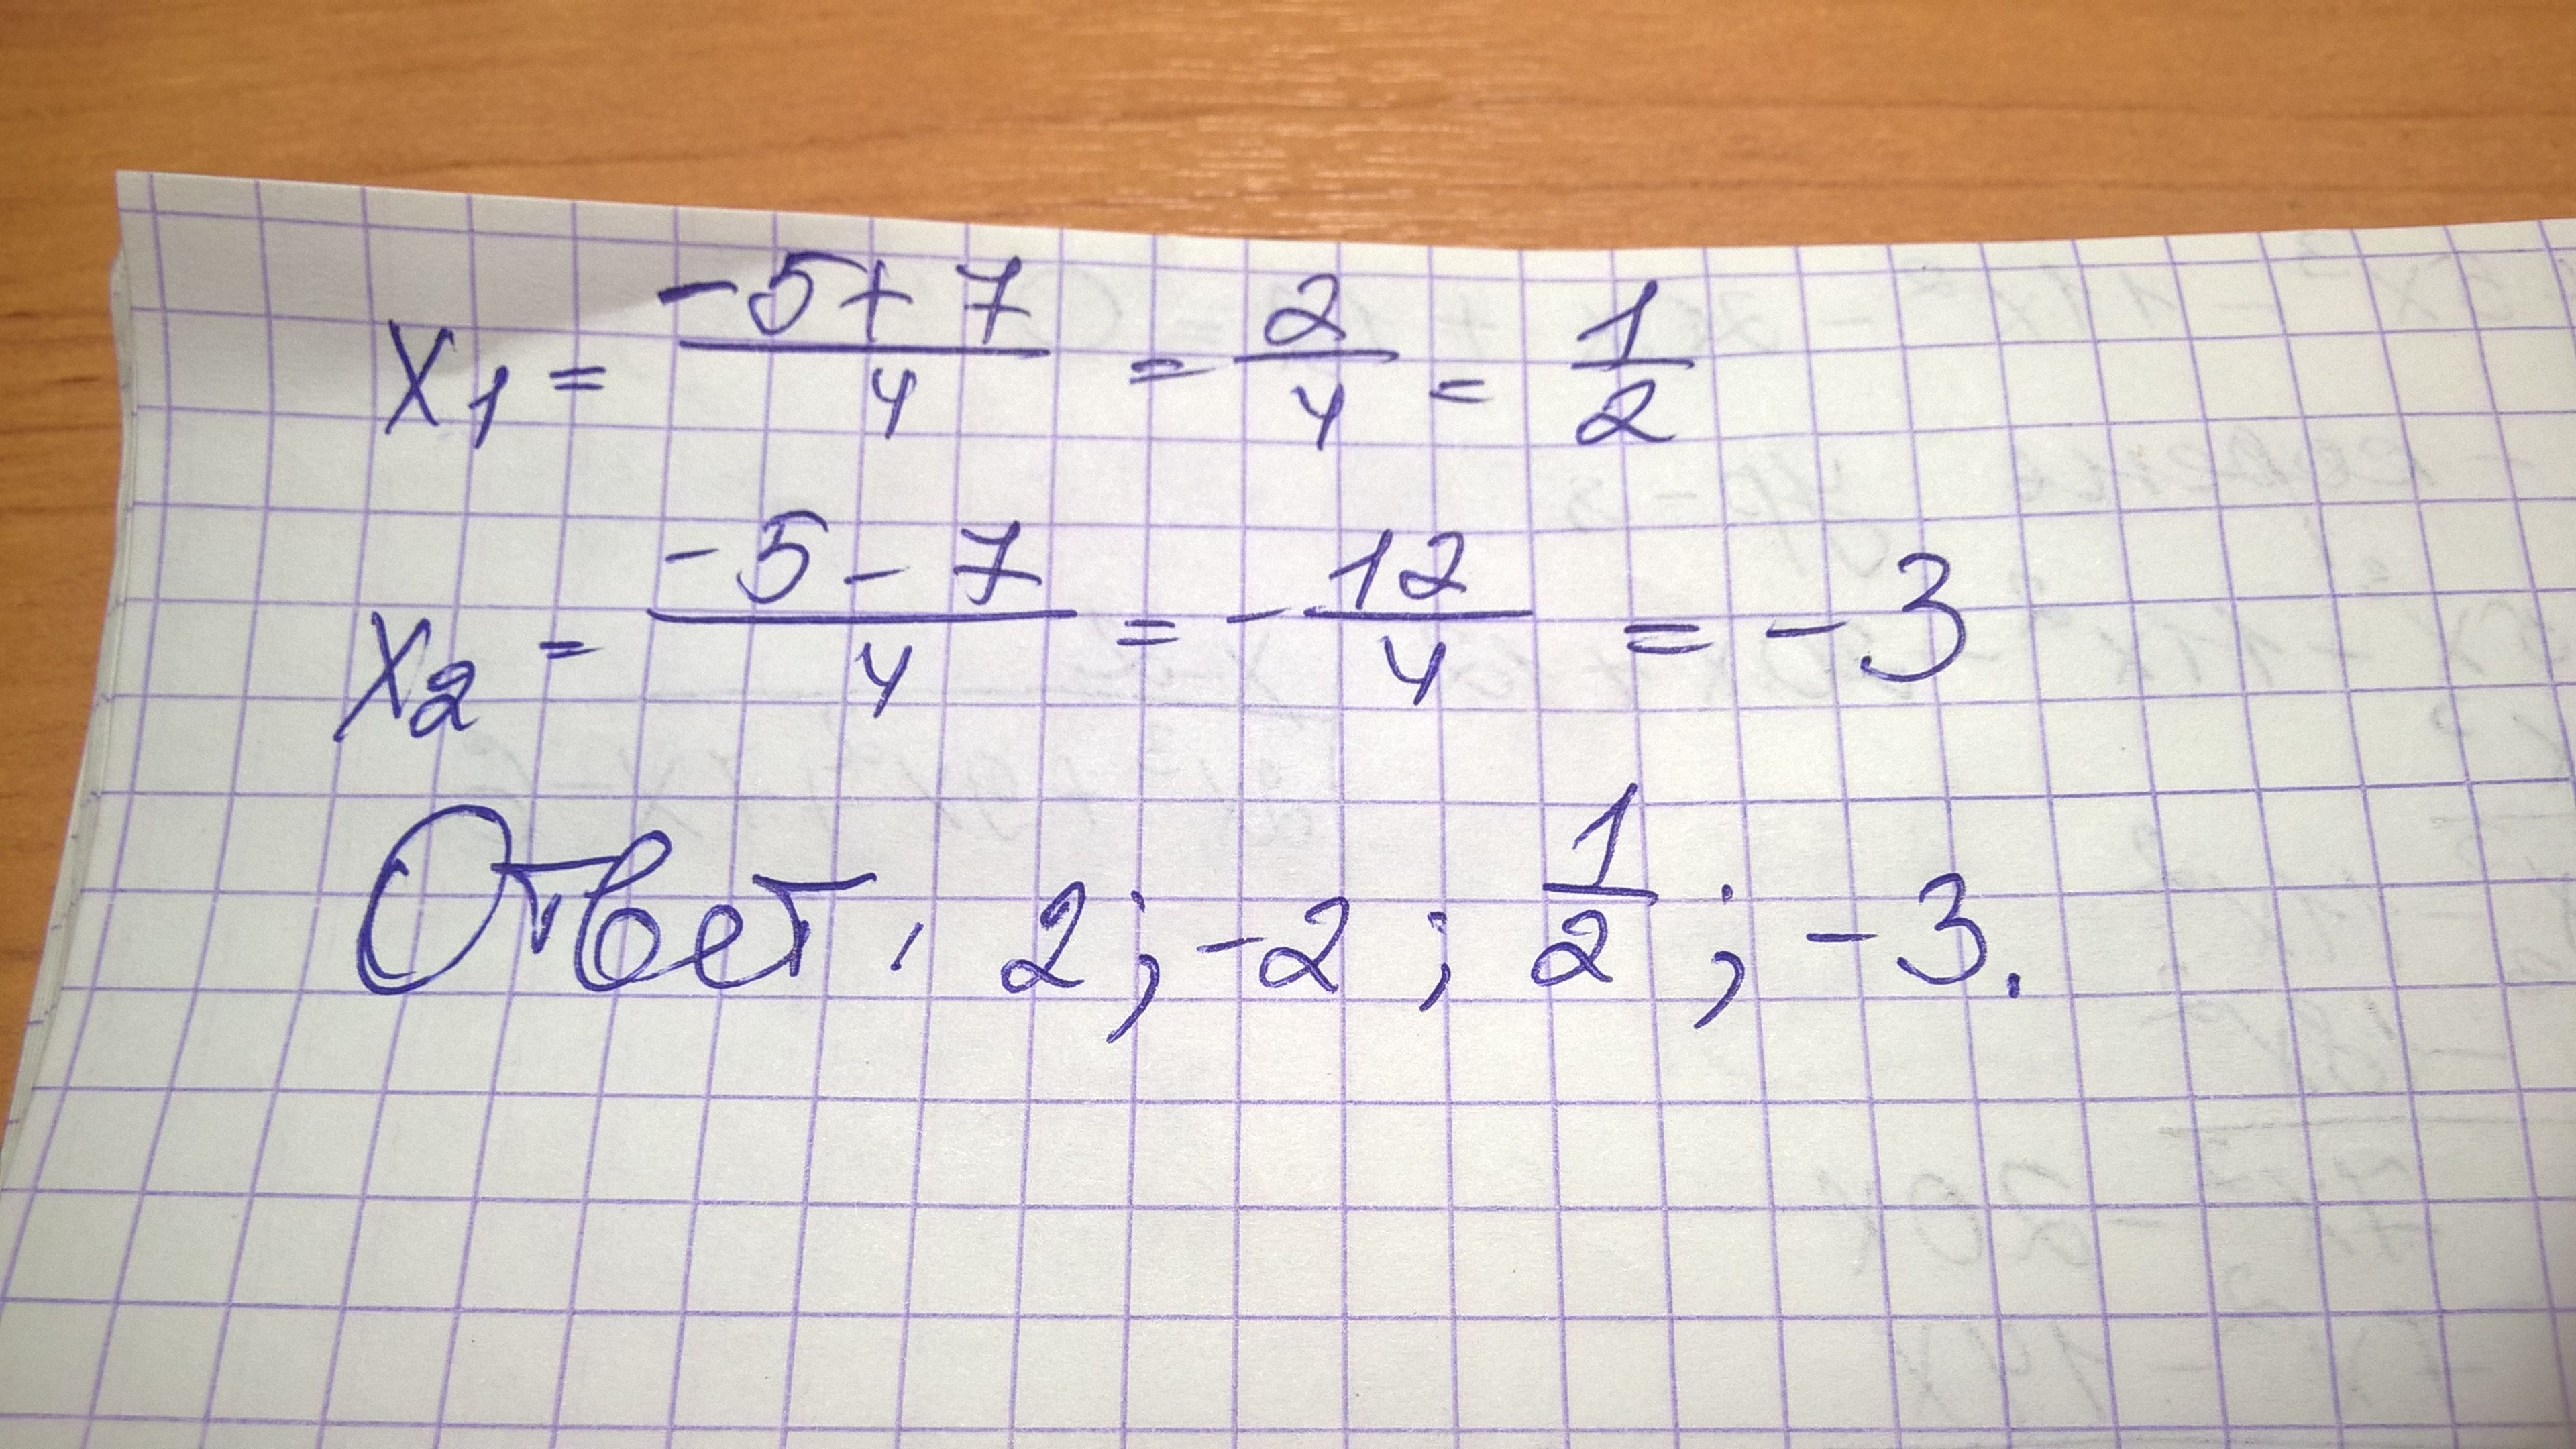 x₁ = (-5+7)/4 = 2/4 = 1/2
x₂ = (-5-7)/4 = -12/4 = -3
Ответ: 2; -2; 1/2; -3.